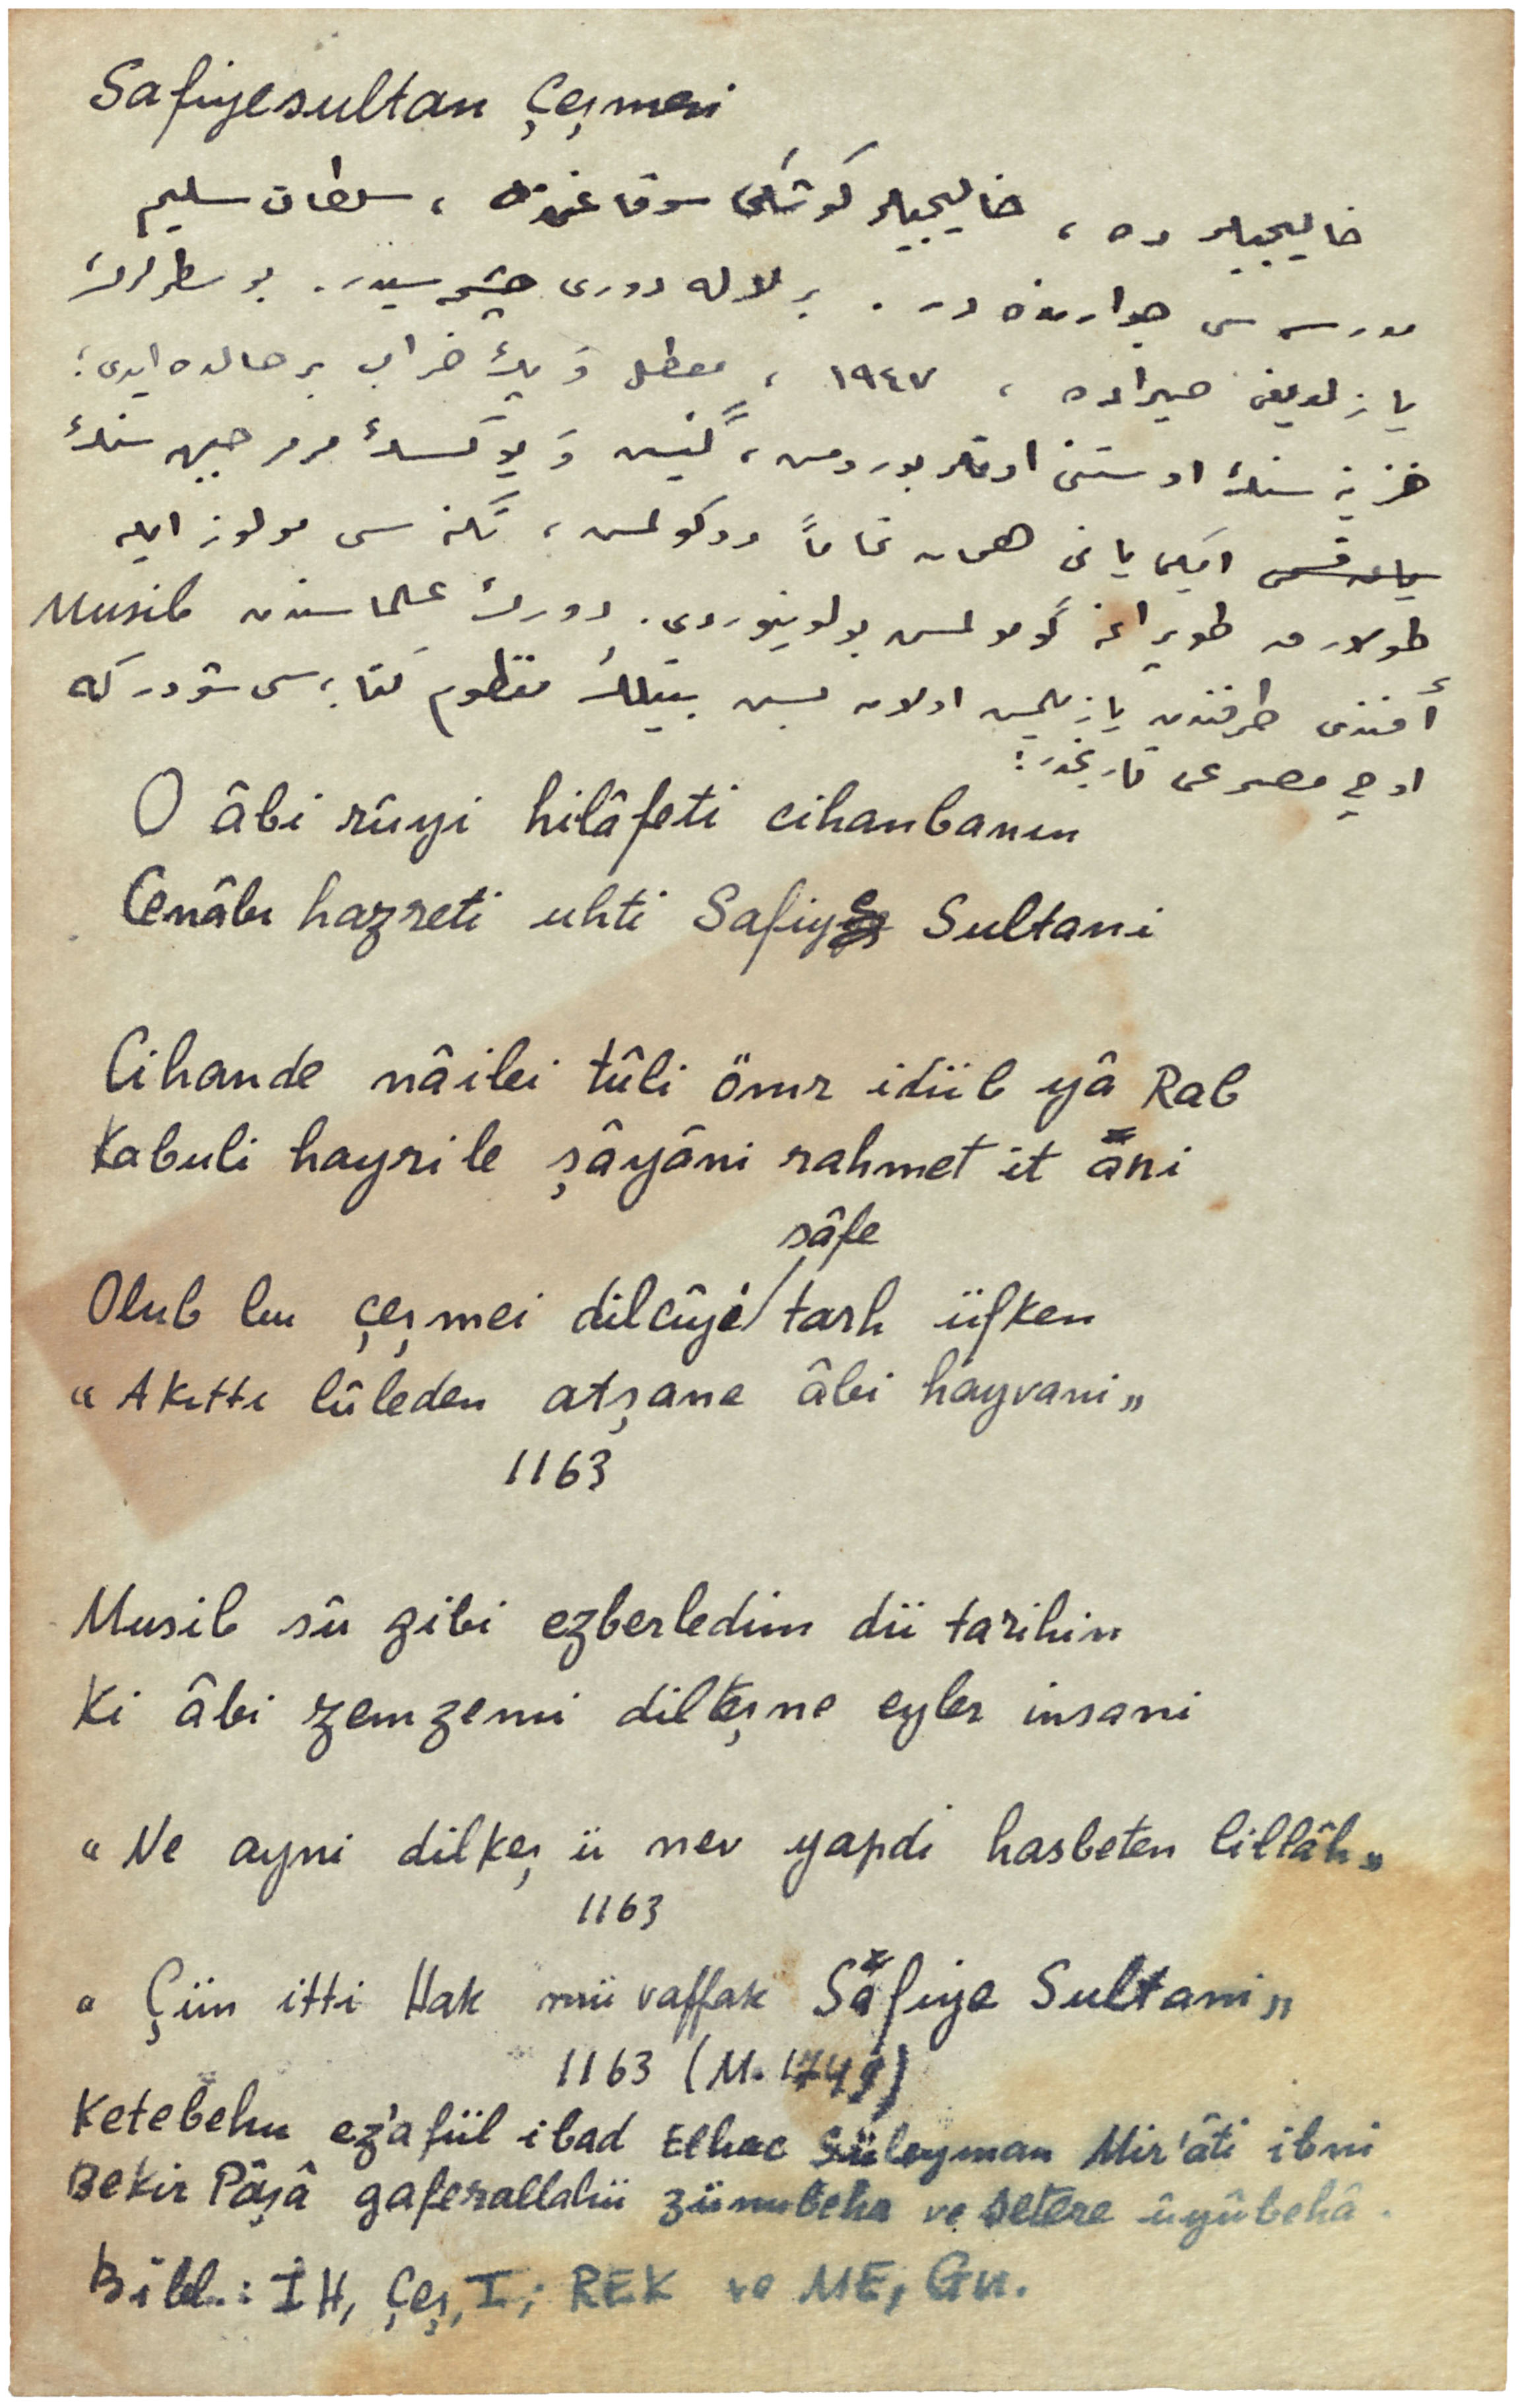 Safiyesultan Çeşmesi
خاليجيلر ده ، خاليجيلر كوشكی سوقاغنده ، سلطان سليم
مدرسه سی جوارنده در . بر لاله دوری چشمه سيدر . بو سطرلرڭ
يازلديغی صيراده ، ١٩٤٧ ، معطل وَ پك خراب بر حالده ايدی ؛
خزينه سنڭ اوستنی اوتلر بورومش ، گنيش وَ يوكسك مرمر جبهه سنڭ
ايكی يانی همان تماماً دوكولمش ، تكنه سی مولوز ايله
طولارق طوپراغه گومولمش بولونيوردی . دورڭ علماسندن Musib
أفندی طرفندن يازيلمش اولان بش بيتلڭ منظوم كتابه سی شودر كه
اوچ مصرعی تاريخدر :
O âbi rûyi hilâfeti cihanbanın
Cenâbı hazreti uhti Safiye Sultani
Cihande nâilei tûli ömr idüb yâ Rab
Kabuli hayrile şâyâni rahmet it âni
Olub bu çeşmei dilcûyi sâfe tarh üfken
« Akıttı lûleden atşane âbi hayvani »
1163
Musib sû gibi ezberledim dü tarihin
Ki âbi zemzemi dilteşne eyler insani
« Ne ayni dilkeş ü nev yapdi hasbeten lillâh »
1163
« Çün itti Hak muvaffak Safiye Sultani »
1163 (M. 1749)
Ketebehu ez'afül ibad Elhac Süleyman Mir'âti ibni
Bekir Pâşâ gaferallahü zünubeha ve setere ûyûbehâ .
Bibl.: İH, Çeş, I; REK ve ME, Gu.